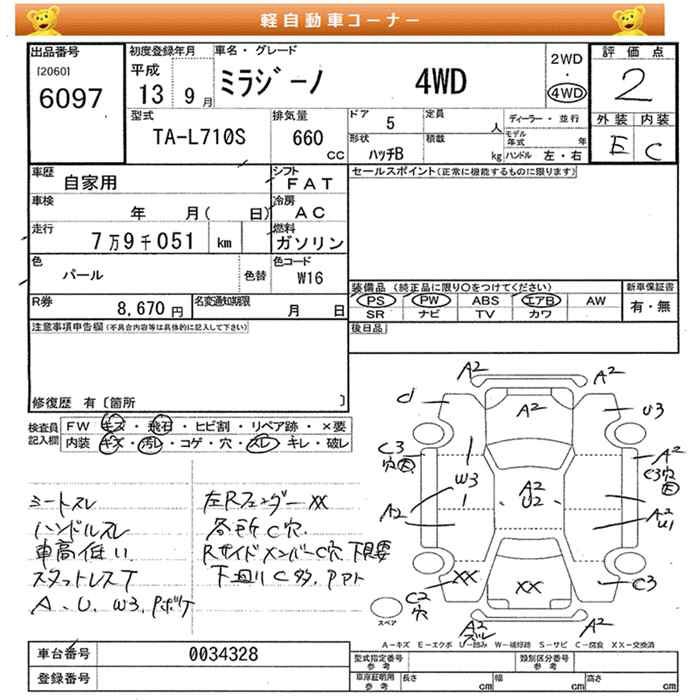 軽自動車コーナー
出品番号
[2060]
6097
初度登録年月
平成
13 9月
車名・グレード
ミラジーノ 4WD
2WD
・
4WD
評価点
2
外装 内装
E C
型式
TA-L710S
排気量
660
cc
ドア 5
定員 人
形状
ハッチB
積載 kg
ディーラー・並行
モデル年式 年
ハンドル 左・右
車歴 自家用
シフト FAT
車検 年 月( 日)
冷房 AC
走行 7万9千051 km
燃料 ガソリン
色 パール
色替
色コード W16
R券 8,670円
名変通知期限 月 日
セールスポイント(正常に機能するものに限ります)
装備品 (純正品に限り○をつけてください)
PS PW ABS エアB AW
SR ナビ TV カワ
新車保証書
有・無
後日品
注意事項申告欄(不具合内容等は具体的に記入して下さい)
修復歴 有〔箇所 〕
検査員記入欄
FW キズ・飛石・ヒビ割・リペア跡・×要
内装 キズ・汚レ・コゲ・穴・スレ・キレ・破レ
シートスレ
ハンドルスレ
車高低い
スタットレスT
A、U、W3、Pボケ
左Rフェンダー XX
各所C穴
RサイドメンバーC穴 下見要
下廻りC多
A2 A2
C A2 U3
C3 穴 W3 A2 U2 A2 C3 穴
A2 A2 U1
XX XX C3
C2 穴
スペア
A2 A2
A-キズ E-エクボ U-凹み W-補修跡 S-サビ C-腐食 XX-交換済
車台番号 0034328
登録番号
型式指定番号 参考
類別区分番号 参考
車庫証明用 参考
長さ cm 幅 cm 高さ cm